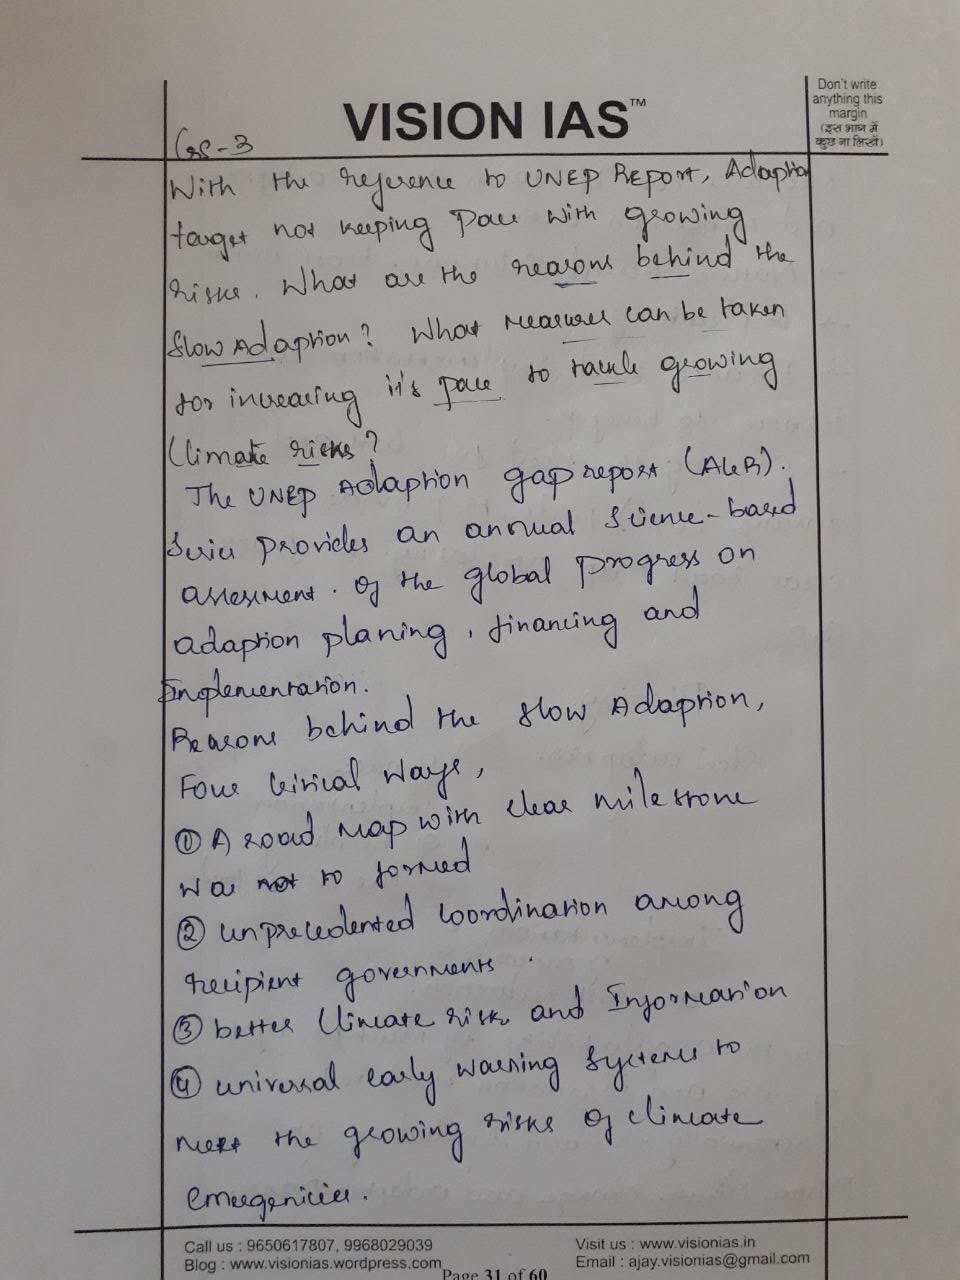 Don't write
anything this
margin
(इस भाग में
कुछ ना लिखें)
VISION IAS™
GS-3
With the reference to UNEP REPORT, Adaption
target not keeping pace with growing
risks. What are the reasons behind the
slow Adaption? What measures can be taken
for increasing it's pace to tackle growing
Climate risks?
The UNEP Adaption gap report (AGR).
Series provides an annual Science-based
assessment. Of the global progress on
adaption planing, financing and
Implementation.
Reasons behind the slow Adaption,
Four Critical ways,
① A road map with clear milestone
was not to formed
② unprecedented coordination among
recipient governments.
③ better Climate risk and Information
④ universal early warning systems to
meet the growing risks of climate
emergenicies.
Call us : 9650617807, 9968029039
Visit us : www.visionias.in
Blog : www.visionias.wordpress.com
Email : ajay.visionias@gmail.com
Page 31 of 60